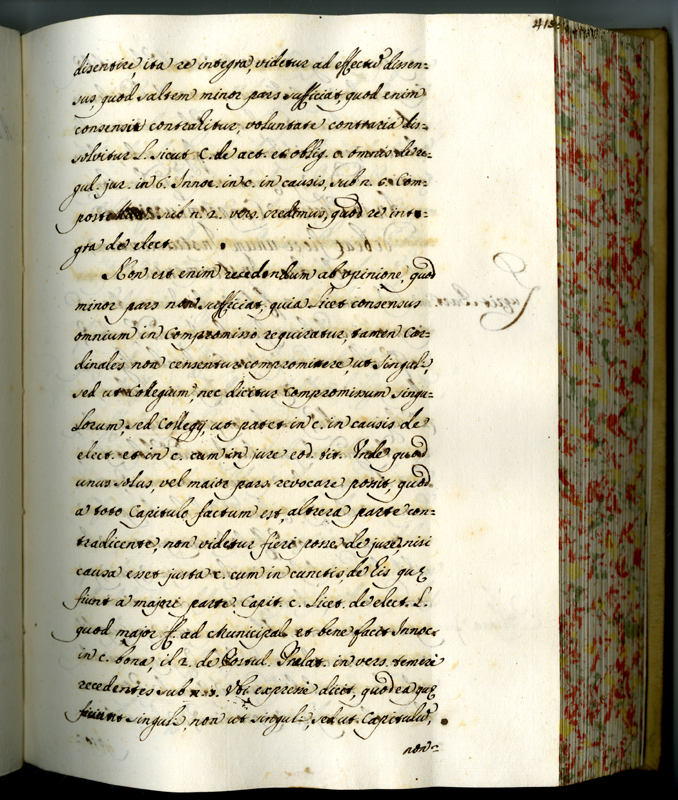 413
disentire, ita re integra, videtur ad effectū dissen=
sus, quod saltem minor pars sufficiat, quod enim
consensu contrahitur, voluntate contraria dis=
solvitur L. sicut C. de act. et oblig. c. omnis de re=
gul. jur. in 6. Innoc. in c. in causis, sub n. 6. Com=
post. sub n. 2. vers. credimus, quod re inte=
gra de elect.
Non est enim recedendum ab opinione, quod
minor pars non sufficiat, quia licet consensus
omnium in Compromisso requiratur, tamen Car=
dinales non censentur compromittere ut singul:,
sed ut Collegium, nec dicitur Compromissum singu=
lorum, sed Collegij, ut patet in c. in causis de
elect. et in c. cum in jure eod. tit. Unde quod
unus solus, vel maior pars revocare possit, quod
a toto Capitulo factum est, altera parte con=
tradicente, non videtur fieri posse de jure, nisi
causa esset justa c. cum in cunctis de his quę
fiunt a majori parte Capit. c. licet. de elect. L.
quod major ff. ad Municipal. et bene facit Innoc.
in c. bona, il 2. de Postul. Prelat. in vers. temere
recedentes sub n. 3. Ubi expresse dicit, quod ea quę
fiunt singul:, non ut singul:, sed ut Capitulū,
non=